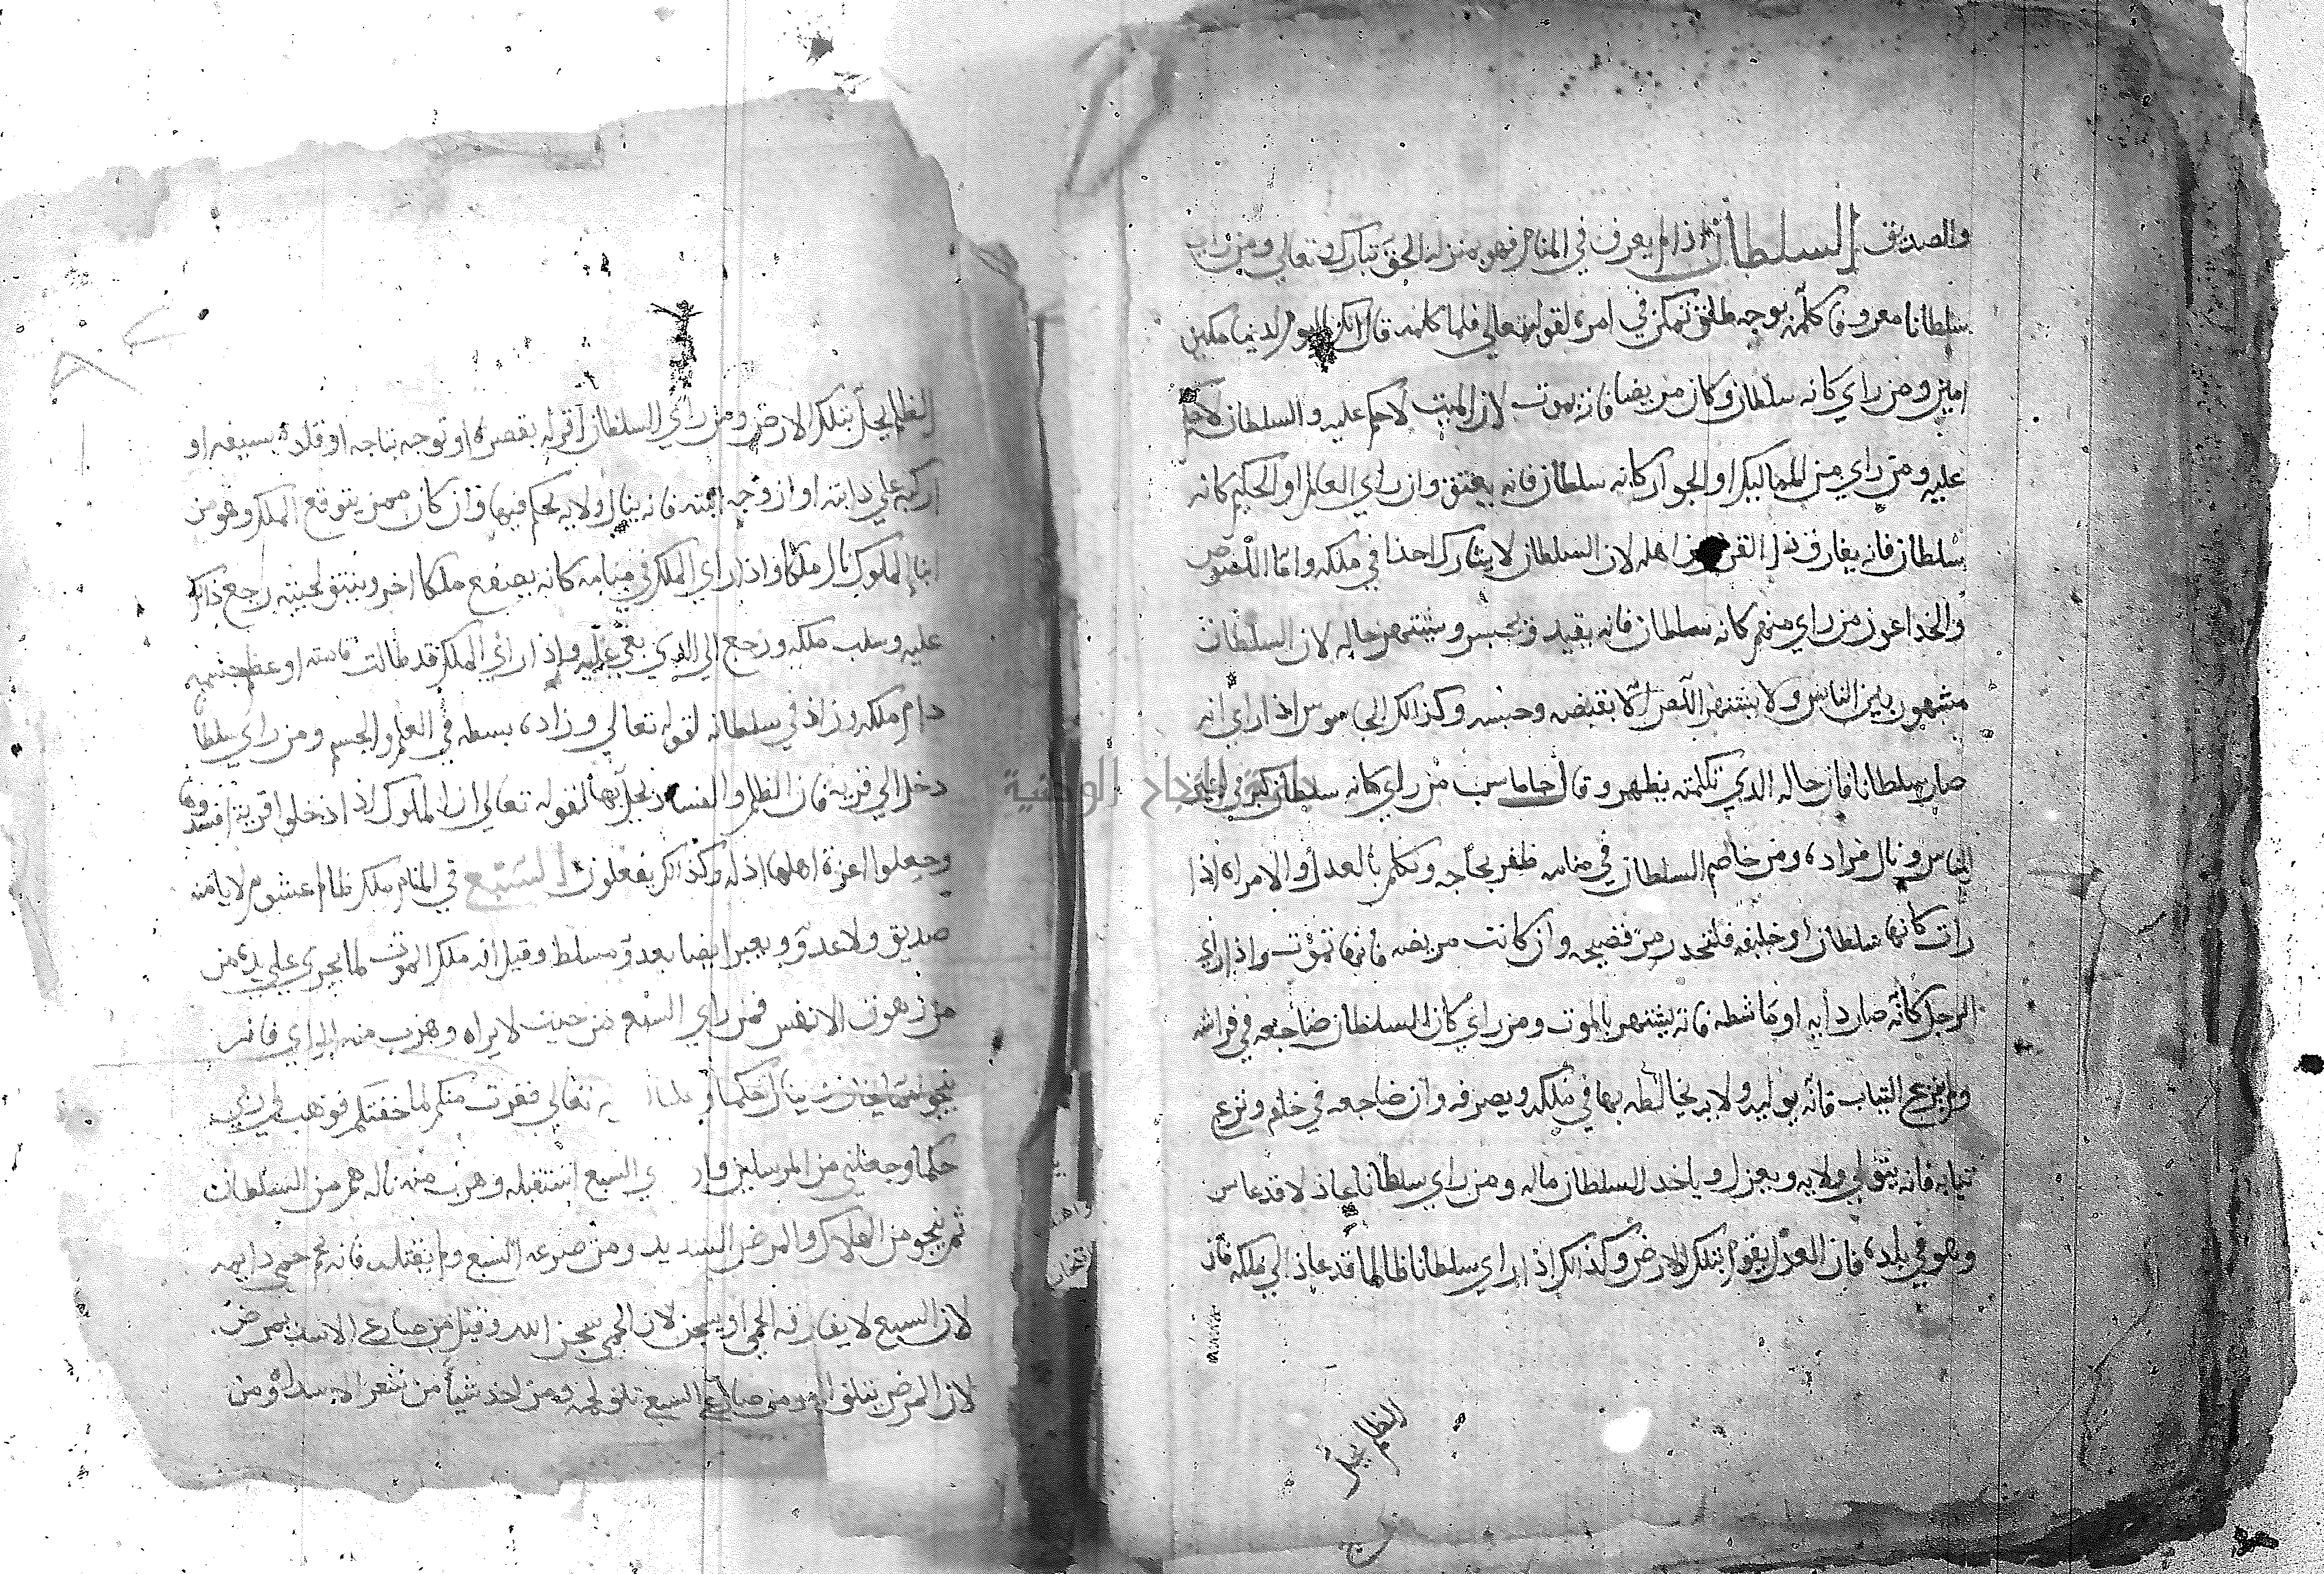 والصديق السلطان اذا لم يعرف في المنام فهو بمنزلة الحق تبارك وتعالي ومن راي
سلطانا معروفا كلمه بوجه طلق تمكن في امره لقوله تعالي فلما كلمه قال انك اليوم لدينا مكين
امين ومن راي كانه سلطان وكان مريضا فانه يموت لان الميت لا حكم عليه والسلطان لا حكم
عليه ومن راي من المماليك او الجوار كانه سلطان فانه يعتق وان راي العالم او الحكيم كانه
سلطان فانه يفارق اهله لان السلطان لا يشارك احدا في ملكه واما اللصوص
والخداعون من راي منهم كانه سلطان فانه يقيد ويحبس ويشتهر حاله لان السلطان
مشهور بين الناس ولا يشتهر اللص الا بقبضه وحبسه وكذالك الجاموس اذا راي انه
صار سلطانا فان حاله الذي تكتمه يظهر وقال جاماسب من راي كانه سلطان كبر في اعين
الناس ونال مراده ومن خاصم السلطان في منامه ظفر بحاجه وتكلم بالعدل والامراه اذا
رات كانها سلطان او خليفه فلتحدر من فضيحه وان كانت مريضه فانها تموت واذا راي
الرجل كانه صار دايه او ماشطه فانه يشتهر بالموت ومن راي كان السلطان ضاجعه في فراشه
ولم ينزع الثياب فانه يوليه ولايه يخالطه بها في ملكه ويصرفه وان ضاجعه في خلم ونزع
ثيابه فانه يتولي ولايه ويعزل وياخد السلطان ماله ومن راي سلطانا عادلا قد عاس
وهو في بلده فان العدل يقوم بتلك الارض وكذالك اذا راي سلطانا ظالما قد عاد الي ملكه فان
الظلم يحل
الظلم يحل بتلك الارض ومن راي السلطان اقره بقصره او توجه بتاجه او قلده بسيفه او
اركبه علي دابته او ازوجه ابنته فانه ينال ولايه يحكم فيها وان كان ممن يتوقع الملك وهو من
ابناء الملوك نال ملكا واذا راي الملك في منامه كانه يصفع ملكا اخر وينتف لحيته رجع ذالك
عليه وسلب ملكه ورجع الي الذي بغي عليه واذا راي الملك قد طالت قامته او عظم جثته
دام ملكه وزاد في سلطانه لقوله تعالي وزاده بسطه في العلم والجسم ومن راي سلطا
دخل الي قريه فان الظلم والفساد يحل بها لقوله تعالي ان الملوك اذا دخلوا قرية افسدوها
وجعلوا اعزة اهلها اذله وكذالك يفعلون السبع في المنام ملك ظالم غشوم لا يامنه
صديق ولا عدو ويعبر ايضا بعدو مسلط وقيل انه ملك الموت لما يجري علي يده من
من زهوق الانفس فمن راي السبع من حيث لا يراه وهرب منه الراي فانه
ينجو مما يخاف وينال حكما و علما تعالي ففرت منكم لما خفتكم فوهب لي ربي
حكما وجعلني من المرسلين واذا راي السبع استقبله وهرب منه ناله هم من السلطان
ثم ينجو من الهلاك والمرض الشديد ومن صرعه السبع ولم يقتله فانه يحم حمي دايمه
لان السبع لا يفارقه الحمي او يسجن لان الحمي سجن الله وقيل من صارع الاسد يمرض
لان المرض يتلف ومن صارع السبع تلف لحمه ومن اخد شيا من شعر الاسد او من